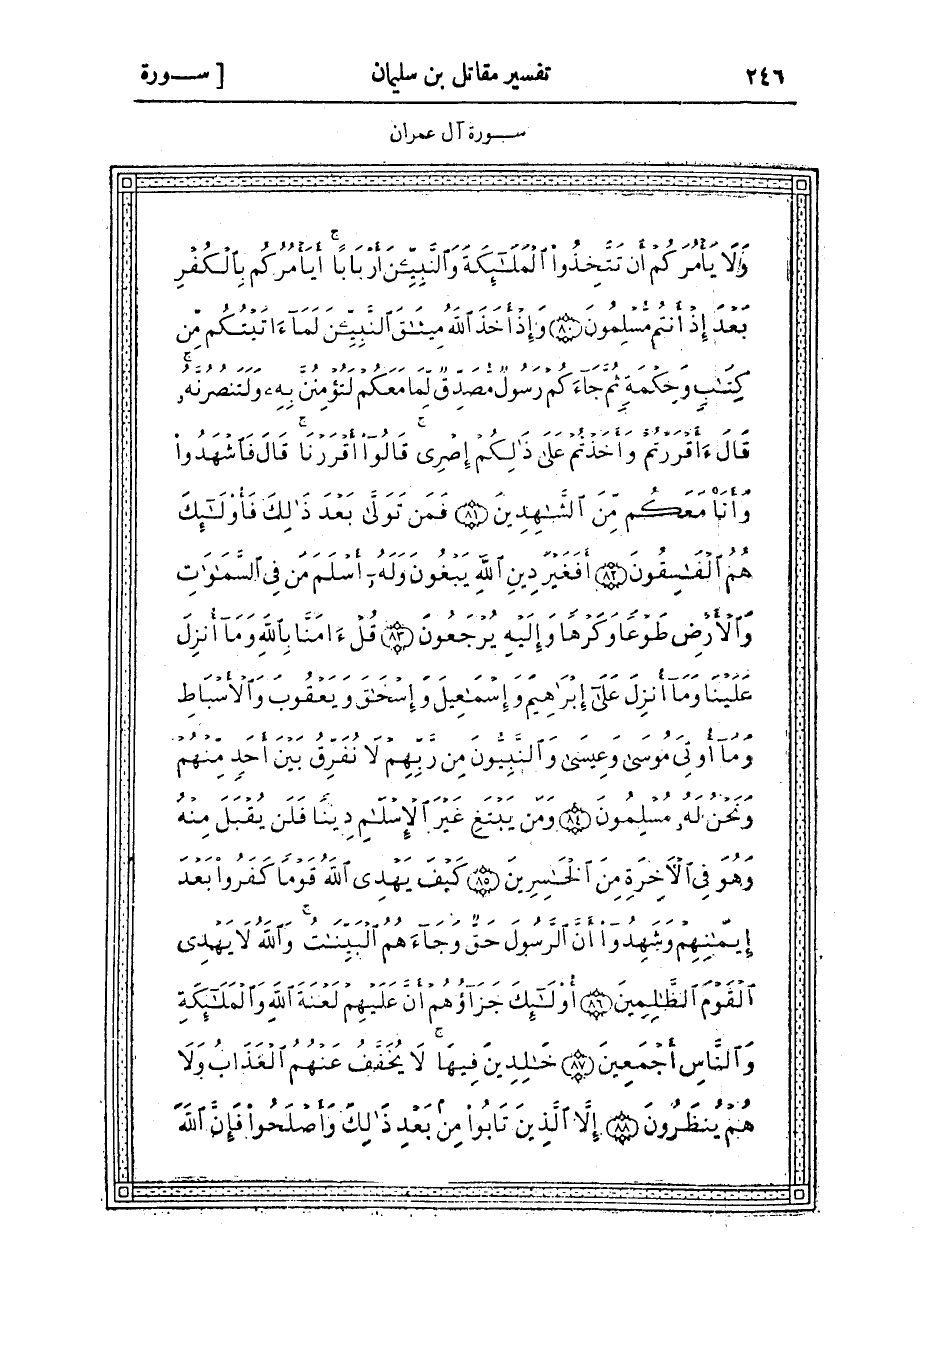 ٢٤٦ تفسير مقاتل بن سليمان [ ســورة
ســورة آل عمران
وَلَا يَأْمُرَكُمْ أَن تَتَّخِذُوا۟ ٱلْمَلَـٰٓئِكَةَ وَٱلنَّبِيِّـۧنَ أَرْبَابًا ۗ أَيَأْمُرُكُم بِٱلْكُفْرِ
بَعْدَ إِذْ أَنتُم مُّسْلِمُونَ ﴿٨٠﴾ وَإِذْ أَخَذَ ٱللَّهُ مِيثَـٰقَ ٱلنَّبِيِّـۧنَ لَمَآ ءَاتَيْتُكُم مِّن
كِتَـٰبٍ وَحِكْمَةٍ ثُمَّ جَآءَكُمْ رَسُولٌ مُّصَدِّقٌ لِّمَا مَعَكُمْ لَتُؤْمِنُنَّ بِهِۦ وَلَتَنصُرُنَّهُۥ ۚ
قَالَ ءَأَقْرَرْتُمْ وَأَخَذْتُمْ عَلَىٰ ذَٰلِكُمْ إِصْرِى ۖ قَالُوٓا۟ أَقْرَرْنَا ۚ قَالَ فَٱشْهَدُوا۟
وَأَنَا۠ مَعَكُم مِّنَ ٱلشَّـٰهِدِينَ ﴿٨١﴾ فَمَن تَوَلَّىٰ بَعْدَ ذَٰلِكَ فَأُو۟لَـٰٓئِكَ
هُمُ ٱلْفَـٰسِقُونَ ﴿٨٢﴾ أَفَغَيْرَ دِينِ ٱللَّهِ يَبْغُونَ وَلَهُۥٓ أَسْلَمَ مَن فِى ٱلسَّمَـٰوَٰتِ
وَٱلْأَرْضِ طَوْعًا وَكَرْهًا وَإِلَيْهِ يُرْجَعُونَ ﴿٨٣﴾ قُلْ ءَامَنَّا بِٱللَّهِ وَمَآ أُنزِلَ
عَلَيْنَا وَمَآ أُنزِلَ عَلَىٰٓ إِبْرَٰهِيمَ وَإِسْمَـٰعِيلَ وَإِسْحَـٰقَ وَيَعْقُوبَ وَٱلْأَسْبَاطِ
وَمَآ أُوتِىَ مُوسَىٰ وَعِيسَىٰ وَٱلنَّبِيُّونَ مِن رَّبِّهِمْ لَا نُفَرِّقُ بَيْنَ أَحَدٍ مِّنْهُمْ
وَنَحْنُ لَهُۥ مُسْلِمُونَ ﴿٨٤﴾ وَمَن يَبْتَغِ غَيْرَ ٱلْإِسْلَـٰمِ دِينًا فَلَن يُقْبَلَ مِنْهُ
وَهُوَ فِى ٱلْـَٔاخِرَةِ مِنَ ٱلْخَـٰسِرِينَ ﴿٨٥﴾ كَيْفَ يَهْدِى ٱللَّهُ قَوْمًا كَفَرُوا۟ بَعْدَ
إِيمَـٰنِهِمْ وَشَهِدُوٓا۟ أَنَّ ٱلرَّسُولَ حَقٌّ وَجَآءَهُمُ ٱلْبَيِّنَـٰتُ ۚ وَٱللَّهُ لَا يَهْدِى
ٱلْقَوْمَ ٱلظَّـٰلِمِينَ ﴿٨٦﴾ أُو۟لَـٰٓئِكَ جَزَآؤُهُمْ أَنَّ عَلَيْهِمْ لَعْنَةَ ٱللَّهِ وَٱلْمَلَـٰٓئِكَةِ
وَٱلنَّاسِ أَجْمَعِينَ ﴿٨٧﴾ خَـٰلِدِينَ فِيهَا ۚ لَا يُخَفَّفُ عَنْهُمُ ٱلْعَذَابُ وَلَا
هُمْ يُنظَرُونَ ﴿٨٨﴾ إِلَّا ٱلَّذِينَ تَابُوا۟ مِنۢ بَعْدِ ذَٰلِكَ وَأَصْلَحُوا۟ فَإِنَّ ٱللَّهَ